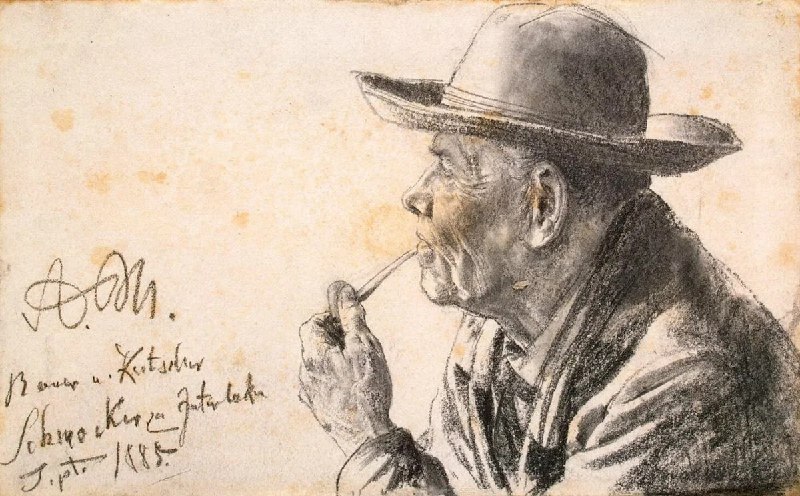 A. M.
Bauer u. Kutscher
Schmocker zu Interlaken
Spt. 1885.